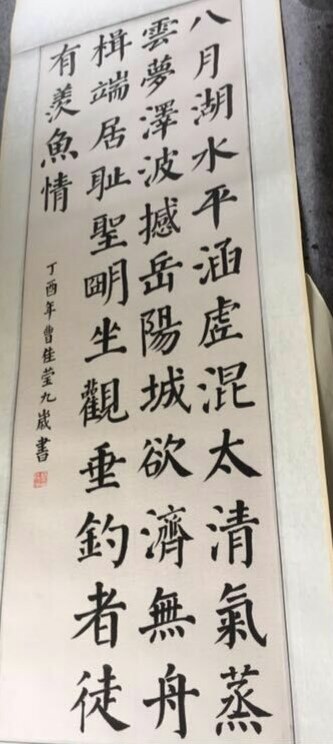 八月湖水平涵虚混太清氣蒸
雲夢澤波撼岳陽城欲濟無舟
楫端居耻聖明坐觀垂釣者徒
有羨魚情
丁酉年曹佳莹九歲書